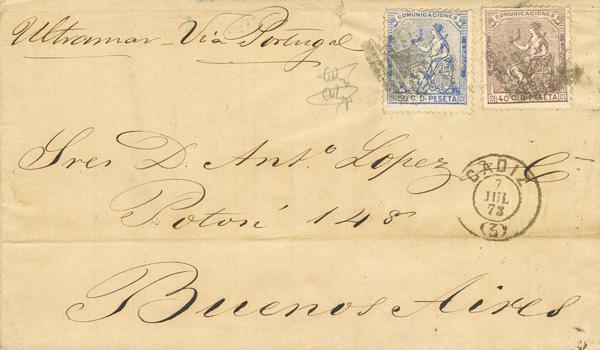 Ultramar - Via Portugal
COMUNICACIONES
50 C. D. PESETA
COMUNICACIONES
40 C. D. PESETA
Sres D. Antº Lopez, Cª
Potosi 148
Buenos Aires
CADIZ
7
JUL
73
(3)